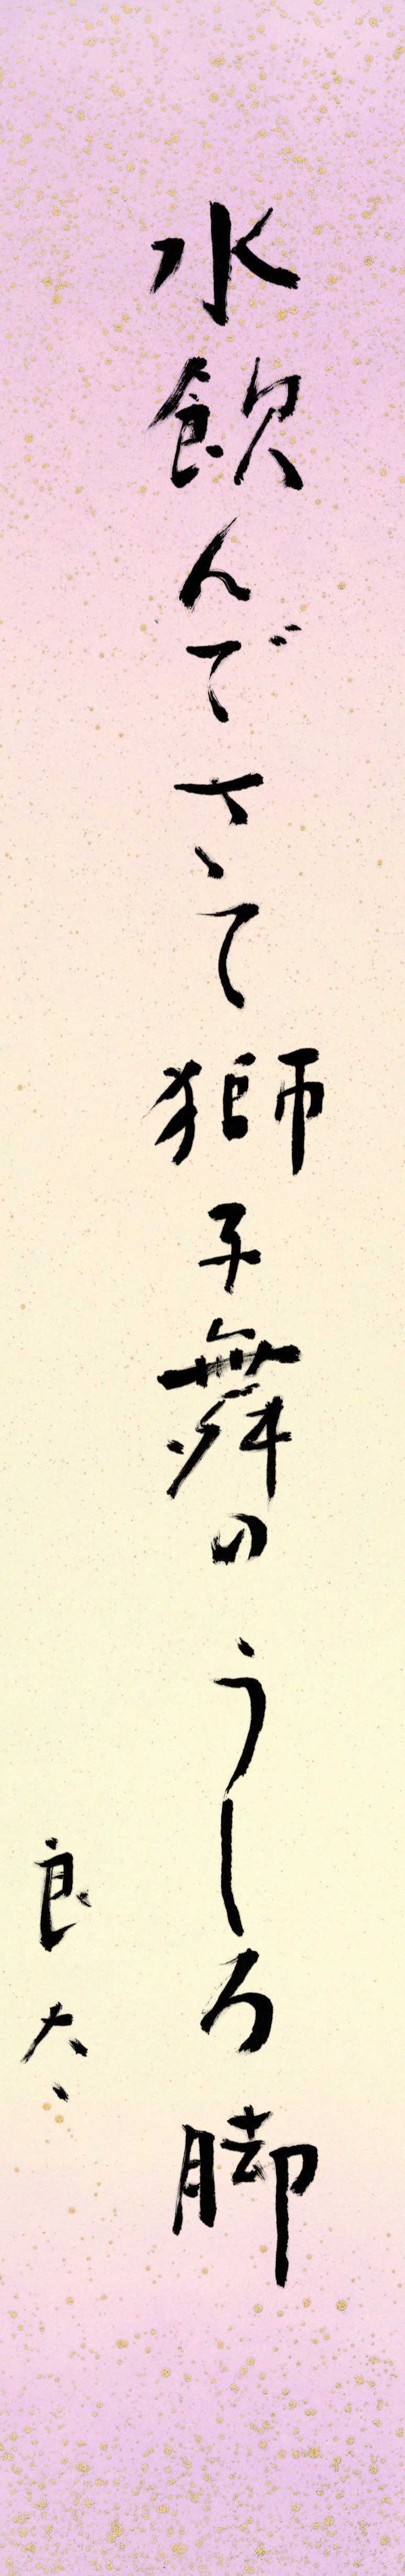 水飲んでさて獅子舞のうしろ脚
良太